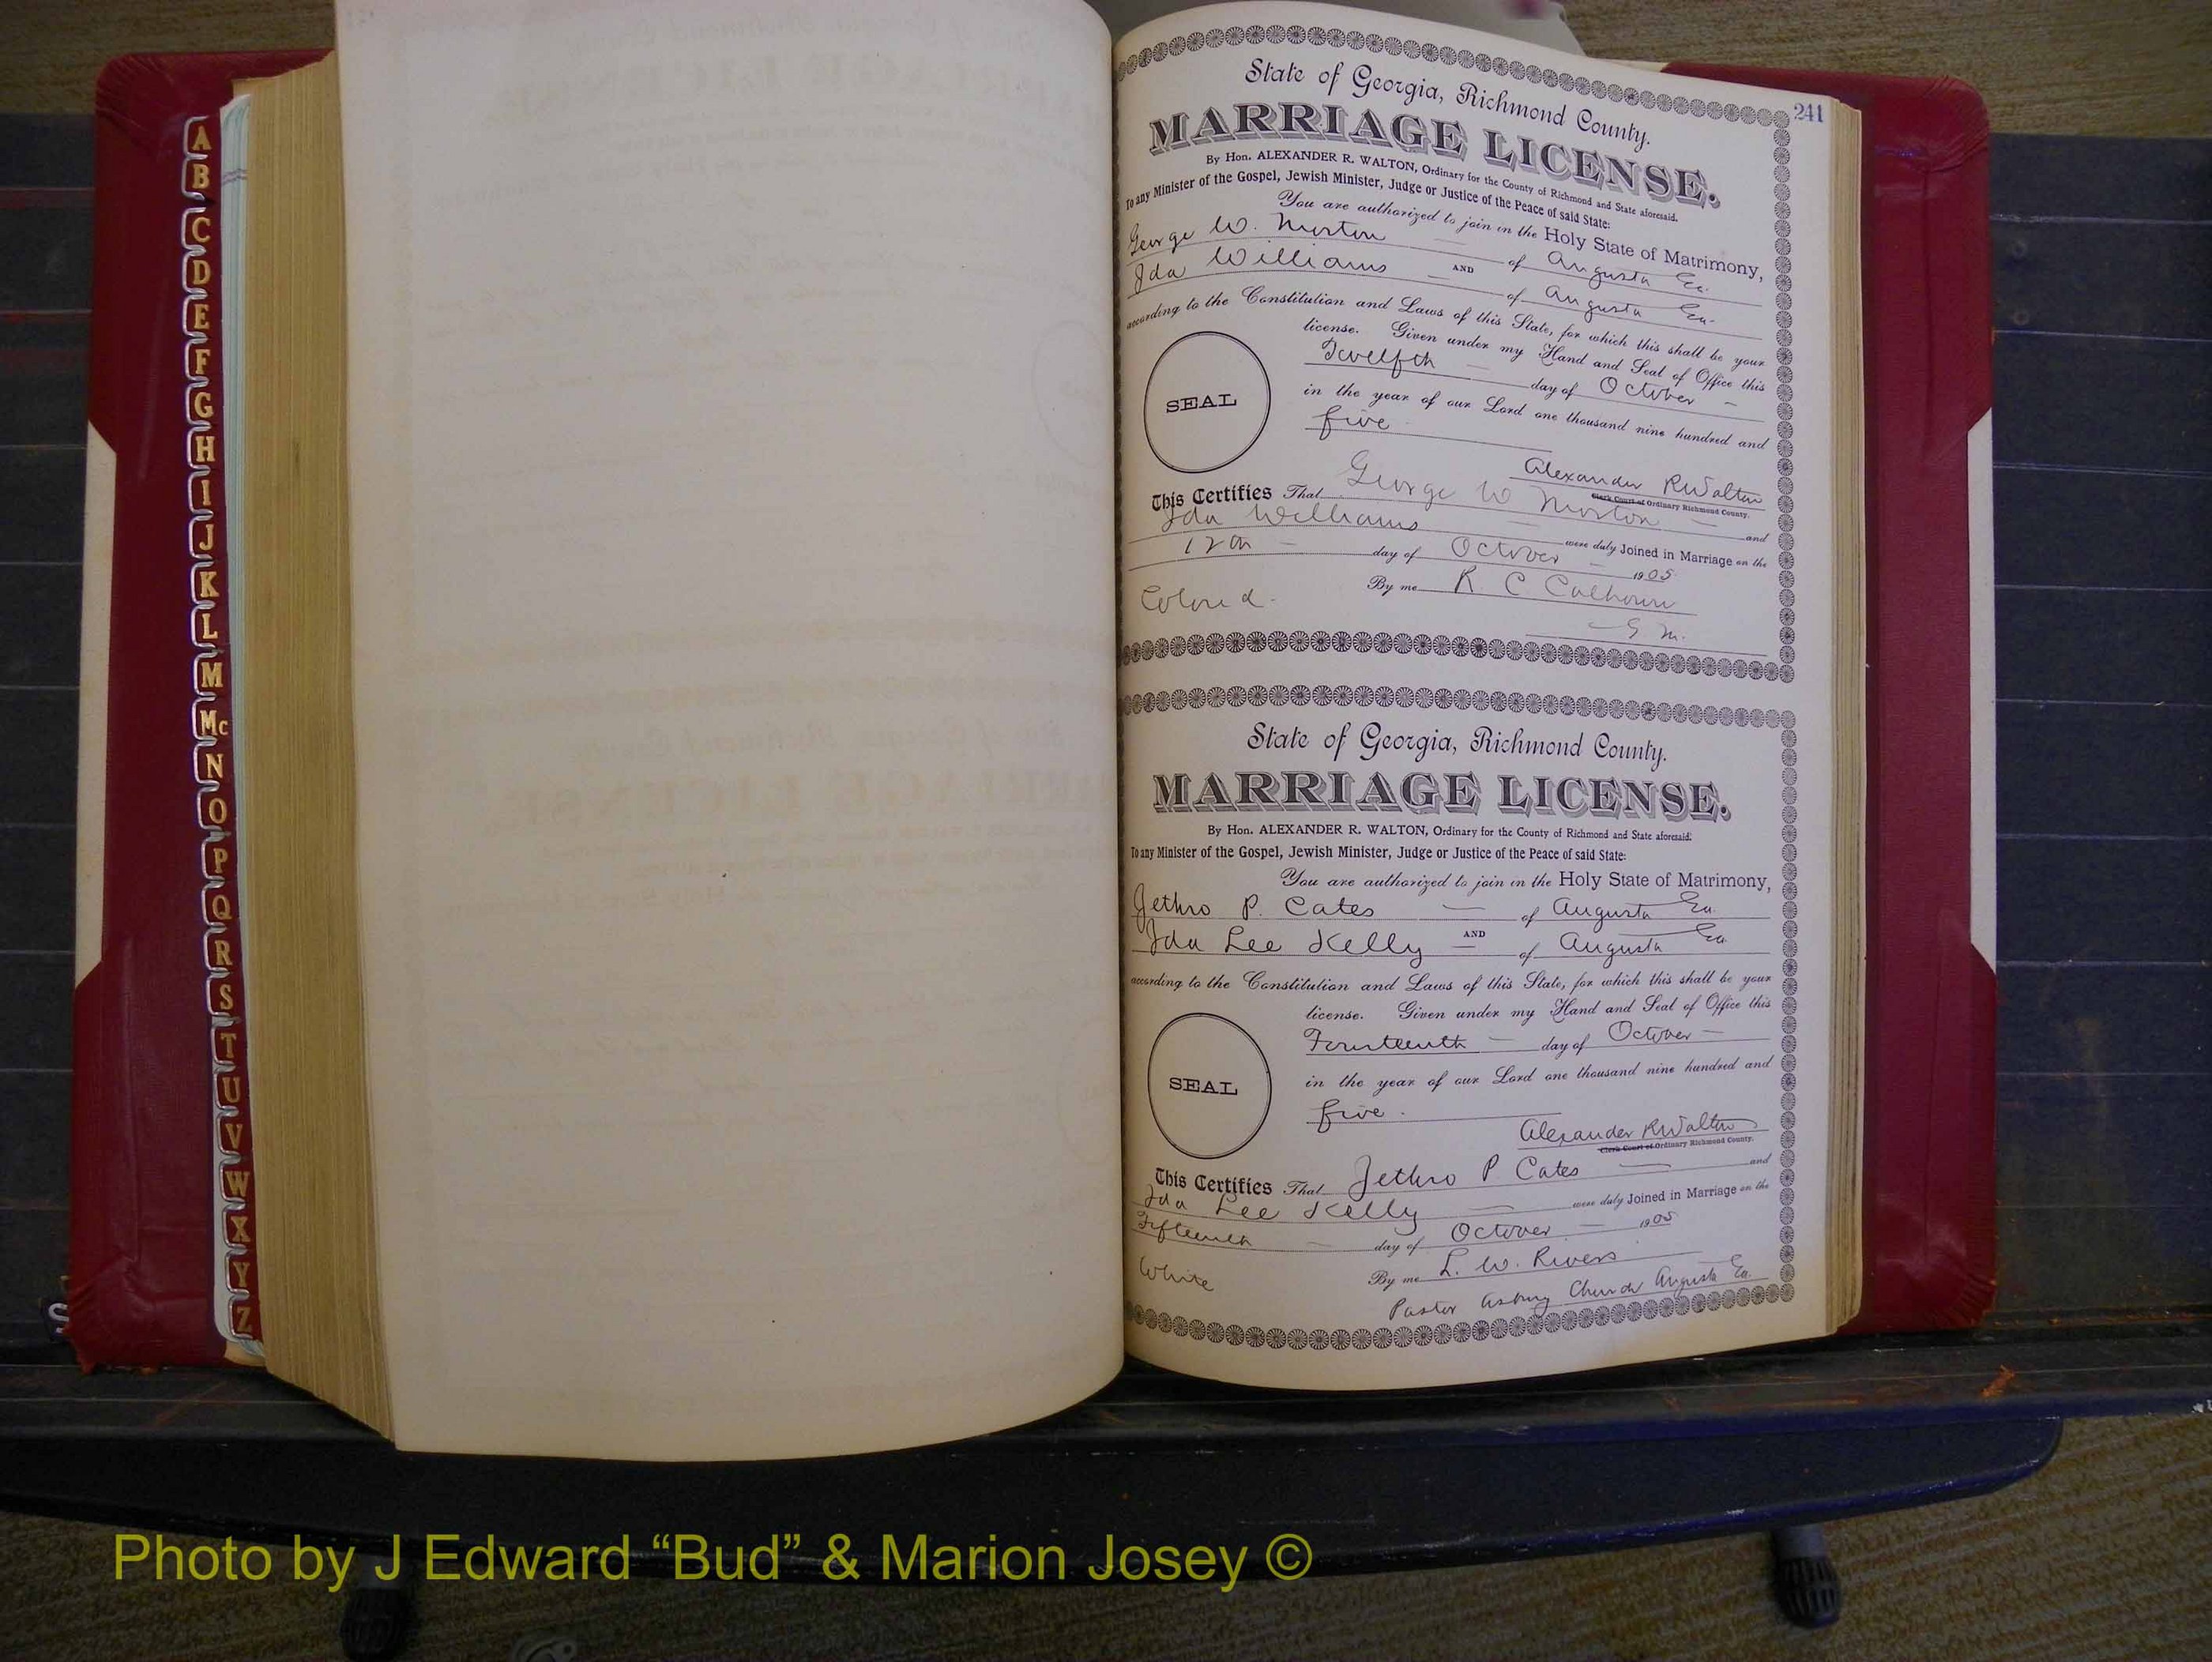 A
B
C
D
E
F
G
H
I
J
K
L
M
Mc
N
O
P
Q
R
S
T
U
V
W
X
Y
Z
241
State of Georgia, Richmond County.
MARRIAGE LICENSE.
By Hon. ALEXANDER R. WALTON, Ordinary for the County of Richmond and State aforesaid.
To any Minister of the Gospel, Jewish Minister, Judge or Justice of the Peace of said State:
You are authorized to join in the Holy State of Matrimony,
George W. Morton — of Augusta Ga.
Ida Williams — AND of Augusta Ga.
according to the Constitution and Laws of this State, for which this shall be your
license. Given under my Hand and Seal of Office this
Twelfth — day of October —
SEAL
in the year of our Lord one thousand nine hundred and
five
Alexander R Walton
Clerk Court of Ordinary Richmond County.
This Certifies That George W Morton — and
Ida Williams — were duly Joined in Marriage on the
12th — day of October — 1905
By me R C Calhoun
Colored.
State of Georgia, Richmond County.
MARRIAGE LICENSE.
By Hon. ALEXANDER R. WALTON, Ordinary for the County of Richmond and State aforesaid.
To any Minister of the Gospel, Jewish Minister, Judge or Justice of the Peace of said State:
You are authorized to join in the Holy State of Matrimony,
Jethro P. Cates — of Augusta Ga.
Ida Lee Kelly — AND of Augusta Ga
according to the Constitution and Laws of this State, for which this shall be your
license. Given under my Hand and Seal of Office this
Fourteenth — day of October —
SEAL
in the year of our Lord one thousand nine hundred and
five.
Alexander R Walton
Clerk Court of Ordinary Richmond County.
This Certifies That Jethro P. Cates — and
Ida Lee Kelly — were duly Joined in Marriage on the
Fifteenth — day of October — 1905
By me L. W. Rivers
White
Pastor Asbury Church Augusta Ga.
Photo by J Edward “Bud” & Marion Josey ©